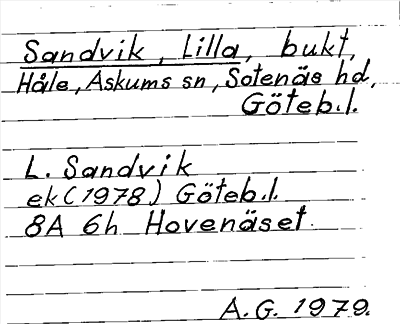 Sandvik, Lilla, bukt,
Håle, Askums sn, Sotenäs hd,
Göteb.l.
L. Sandvik
ek (1978) Göteb.l.
8A 6h Hovenäset
A.G. 1979.